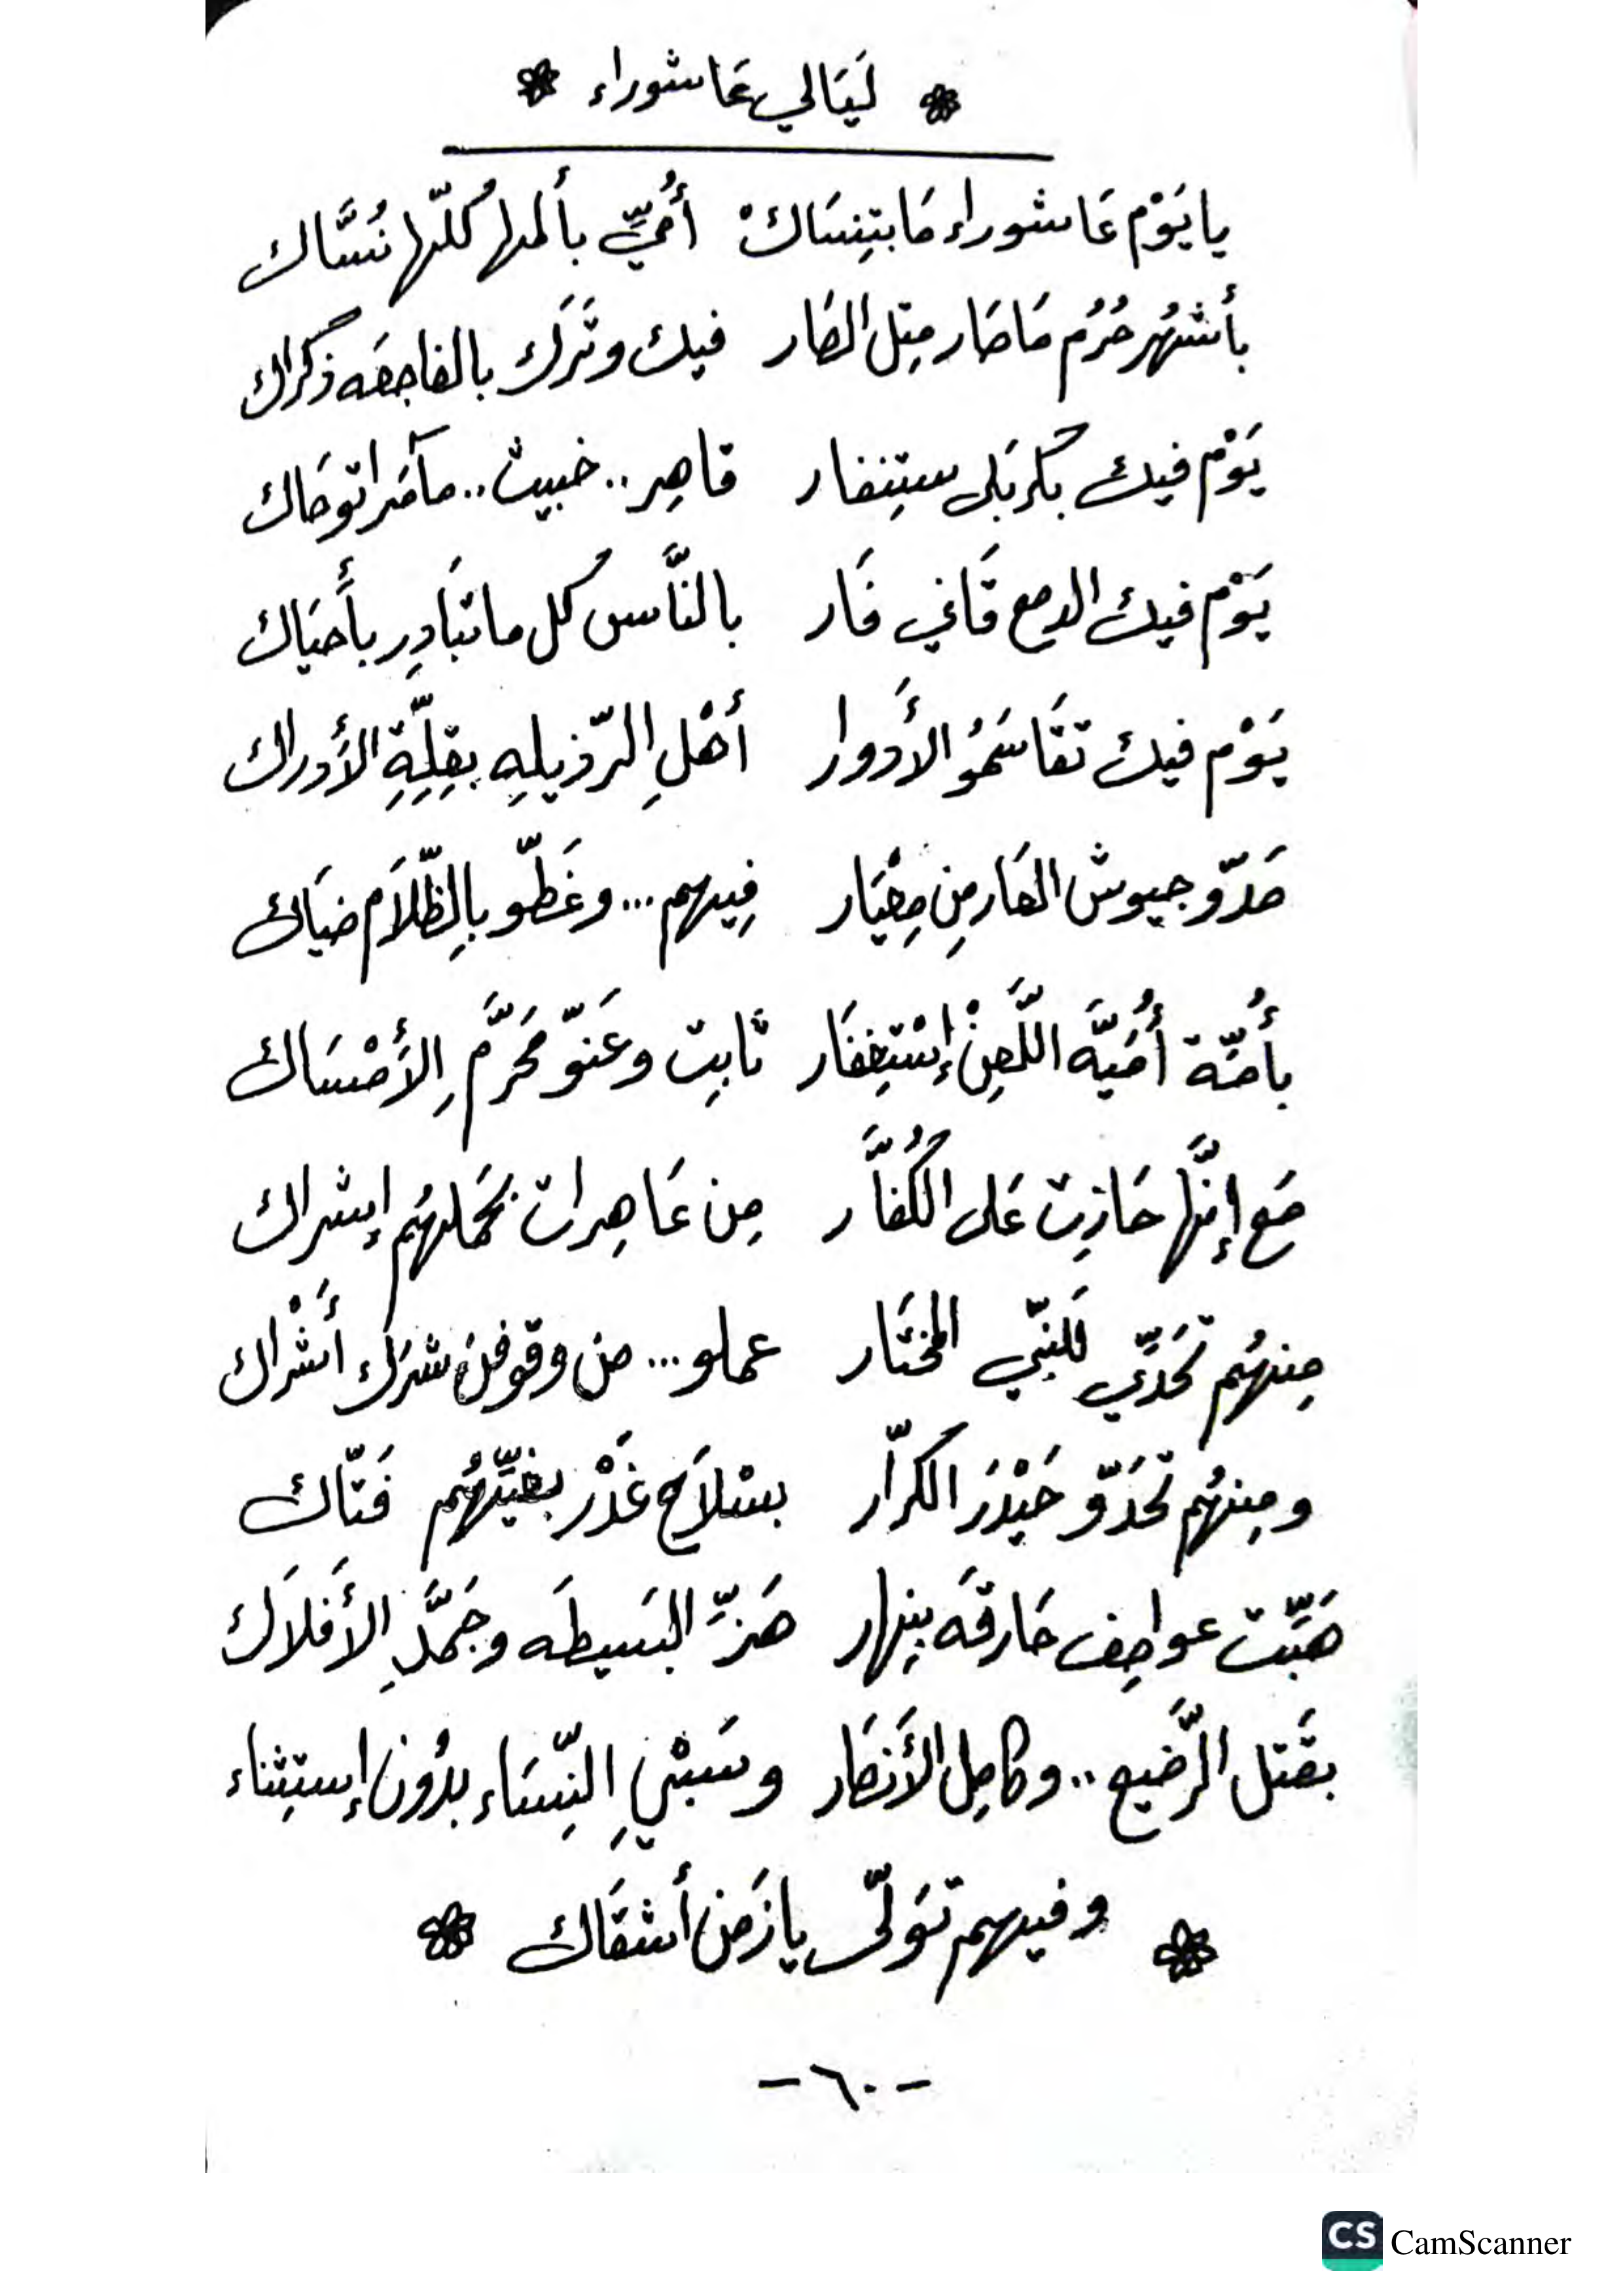 لَيَالي عَاشوراء
يا يَوْم عَاشوراء مَا بتِنِسَاكْ أُمّيِّ بألمها كُلّها نُسَّاك
بأشهُر حُرُم مَا صَار مِتِل الصَار فيك وتَرَك بالفاجعَه ذكراك
يَوْم فيك بكَربَلى ستِنفار قاهِر.. خبيث.. مآمَراتو حَاك
يَوْم فيك الدمع قَاني فَار بالنَّاس كُل ما تبَادِر بأَحيَاك
يَوْم فيك تقَاسَمُو الأَدوار أهْلِ الرّذيلِهِ بقِلِّةِ الأَدراك
مَدّو جيوش العَار مِن مِعْيَار فِيهم... وغَطّو بالِظّلَام ضيَاك
بأُمّة أُمَيَّه اللَّعِنْ إسْتِغفَار تَابِت وعَنوّ مَحَرَّمِ الأَمْسَاك
مَع إنَّها حَازِت عَلى الكُفاَّر مِن عَاهِرات تحَملهُم إشراك
مِنهُم تحَدّي للنبّي المختَار عملو... من وقوفن شرَك أَشْراك
ومِنهُم تحَدّو حَيْدَر الكرّار بسْلاَح غَدْر بغيِّهُم فَتّاك
هَبّت عواصِف حَارقَه بنِهار هَزِّ البَسيطَه وجَمَّدِ الأَفلاَك
بقَتل الرَّضيع.. وكامِل الأَنصَار وسَبْيِ النِّسَاء بدُون إستِثناء
وفيهم تَوَلّى يا زَمَن أشقَاك
-٦٠-
CS CamScanner